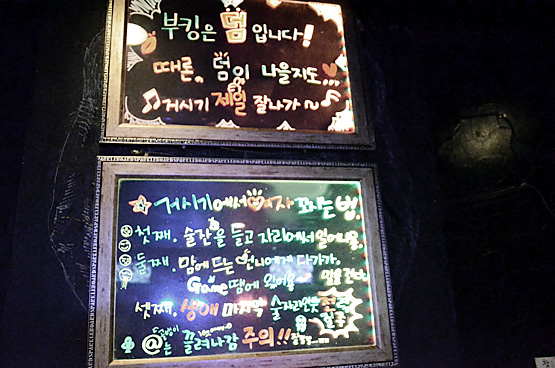 부킹은 덤 입니다!
때론, 덤이 나을지도...
거시기 제일 잘나가~
거시기에서 여자 꼬시는 법.
첫째. 술잔을 들고 자리에서 일어나요.
둘째. 맘에 드는 언니에게 다가가.
Game땜에 왔어요
셋째. 생애 마지막 술자리인듯
@는 끌려나감 주의!!